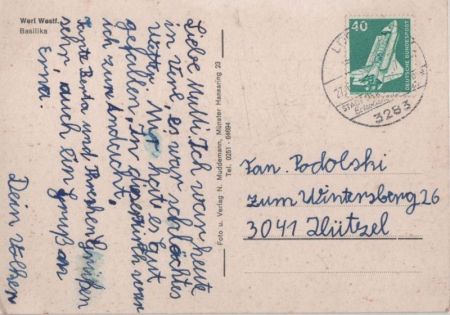 Werl Westf.
Basilika
Liebe Mutti Ich war heute
in Verl, es war schlechtes
Wetter. Mir hat es gut
gefallen, In diese Kirch waren
ich zum Andacht,
Tante Berta und
sehr, auch ein Gruß an
Erna.
Dein Volker
Foto u. Verlag N. Muddemann, Münster Hansaring 23
Tel. 0251-
40
DEUTSCHE BUNDESPOST
3283
Fam. Podolski
zum Wintersberg 26
3041 Hützel